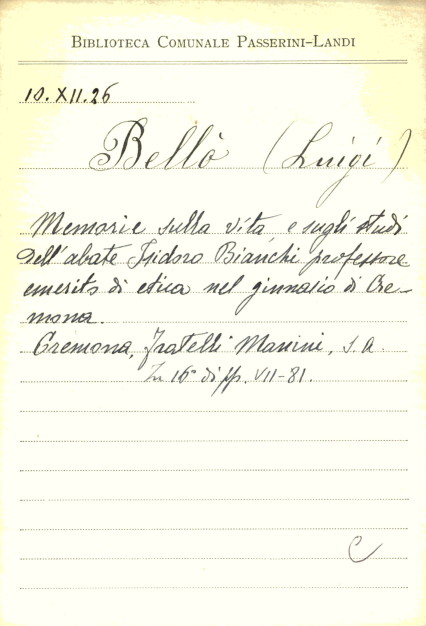 BIBLIOTECA COMUNALE PASSERINI-LANDI
10.XII.26
Bellò (Luigi)
Memorie sulla vita e sugli studi
dell'abate Isidoro Bianchi professore
emerito di etica nel ginnasio di Cre-
mona.
Cremona, Fratelli Manini, s. a.
In 16° di pp. VII-81.
C